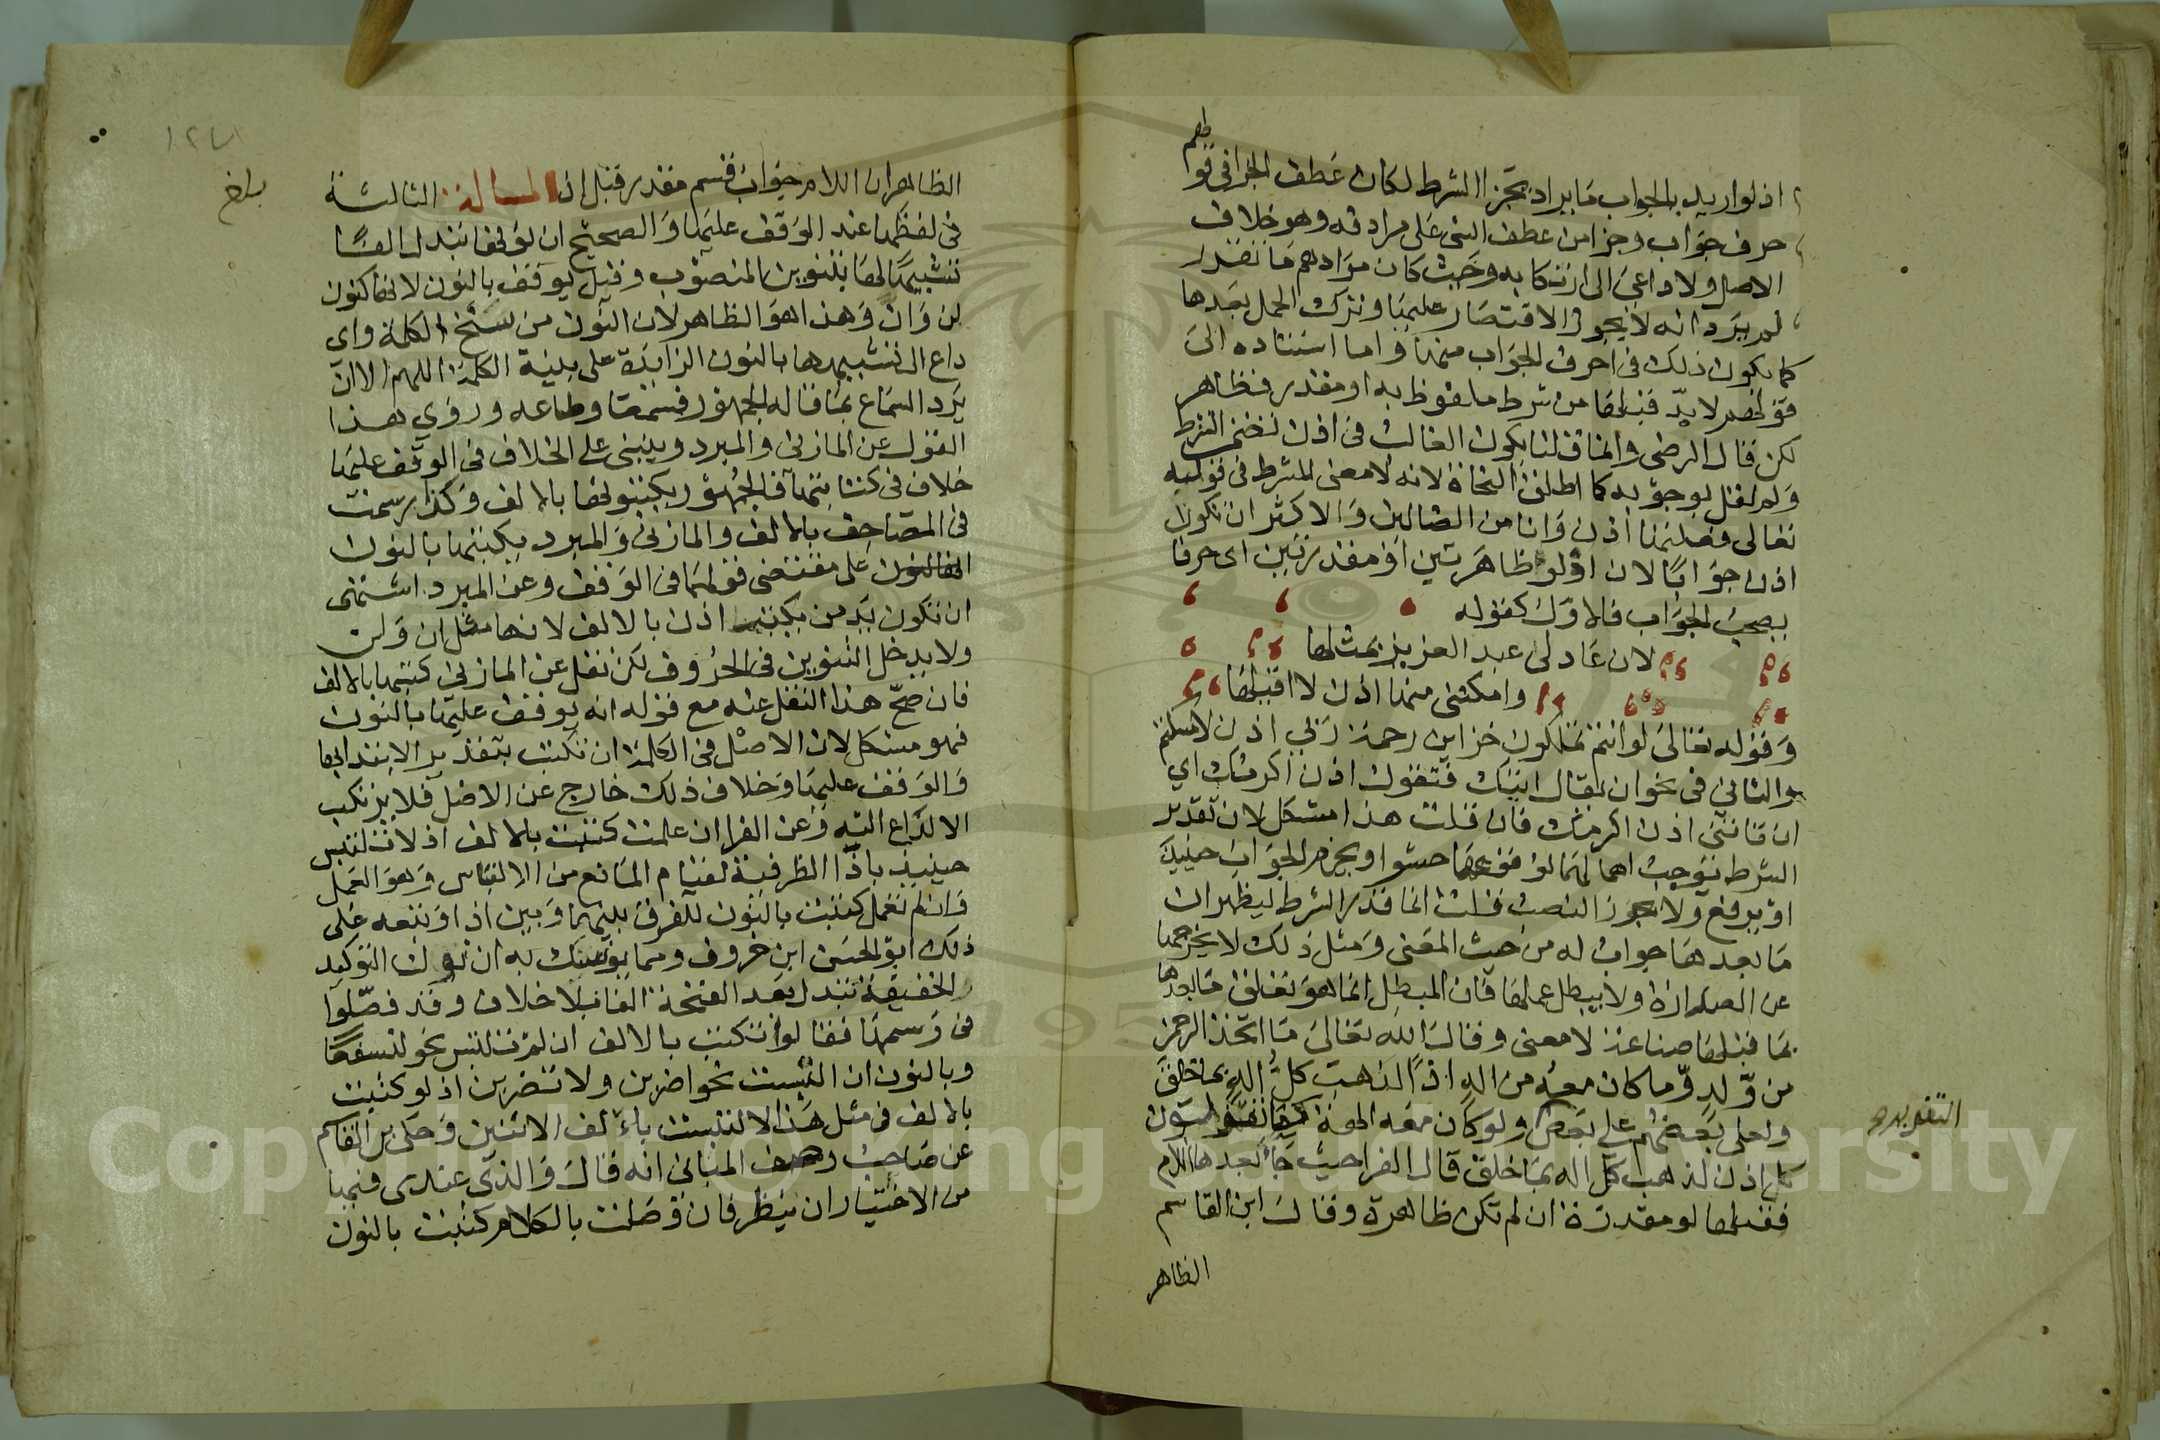 اذ لو اريد بالجواب ما يراد بجزا الشرط لكان عطف الجزا في قولهم
حرف جواب وجزا من عطف الشي على مرادفه وهو خلاف
الاصل ولا داعي الى ارتكابه وحيث كان مرادهم ما تقدر
لم يرد انه لا يجوز الاقتصار عليها وترك الجمل بعدها
كما يكون ذلك في احرف الجواب منها واما استناده الى
قولهم لا بد قبلها من شرط ملفوظ به او مقدر فظاهر
لكن قال الرضي وانما قلنا يكون الغالب في اذن تضمن الشرط
ولم نقل بوجوبه كما اطلق النحاة لانه لا معنى للشرط في قوله
تعالى فعلتها اذن وانا من الضالين والاكثر ان تكون
اذن جوابا لان او لو ظاهرتين او مقدرتين اي حرفا
بصحب الجواب فالاول كقوله
لان عاد لى عبد العزيز بمثلها
وامكنني منها اذن لا اقيلها
وقوله تعالى لو انتم تملكون خزاين رحمة ربي اذن لامسكتم
والثاني في نحو ان يقال اتيتك فتقول اذن اكرمك اي
ان تاتني اذن اكرمك فان قلت هذا مشكل لان تقدير
الشرط يوجب اهمالها لوقوعها حشوا وبجزم الجواب حينيذ
او يرفع ولا يجوز النصب قلت انما قدر الشرط ليظهر ان
ما بعدها جواب له من حيث المعنى ومثل ذلك لا يخرجها
عن الصدارة ولا يبطل عملها فان المبطل انما هو تعلق ما بعدها
بما قبلها صناعة لا معنى وقال الله تعالى ما اتخذ الرحمن
من ولد وما كان معه من اله اذًا لذهب كل اله بما خلق
ولعلى بعضهم على بعض ولو كان معه الهة كما تقولون
كل اذن لذهب كل اله بما خلق قال الفرا حيث جا بعدها اللام
فقبلها لو مقدرة ان لم تكن ظاهرة وقال ابن القاسم
الظاهر
التقدير
بلغ
الظاهر ان اللام جواب قسم مقدر قبل اذا المسالة الثالثة
في لفظها عند الوقف عليها والصحيح ان نونها تبدل الفًا
تشبيها لها بتنوين المنصوب وقيل يوقف بالنون لانها كنون
لن وان وهذا هو الظاهر لان النون من سنخ الكلمة واي
داع الى تشبيهها بالنون الزايدة على بنية الكلمة اللهم الا ان
يرد السماع بما قاله الجمهور فسمعا وطاعه وروي هذا
القول عن المازني والمبرد وينبني على الخلاف في الوقف عليها
خلاف في كتابتها فالجمهور يكتبونها بالالف وكذا رسمت
في المصاحف بالالف والمازني والمبرد يكتبها بالنون
على مقتضى قولهما في الوقف وعن المبرد اشتهى
ان تكون يد من يكتب اذن بالالف لانها مثل ان ولن
ولا يدخل التنوين في الحروف لكن نقل عن المازني كتبها بالالف
فان صح هذا النقل عنه مع قوله انه يوقف عليها بالنون
فهو مشكل لان الاصل في الكلمة ان تكتب بتقدير الابتدا بها
والوقف عليها وخلاف ذلك خارج عن الاصل فلا يرتكب
الا لداع اليه وعن الفرا ان عملت كتبت بالالف اذ لا تلتبس
حينيذ باذا الظرفية لقيام المانع من الالتباس وهو العمل
وان لم تعمل كتبت بالنون للفرق بينها وبين اذا وتبعه على
ذلك ابو الحسن ابن خروف ومما يتمسك به ان نون التوكيد
الخفيفة تبدل بعد الفتحة الفا بلا خلاف وقد فصلوا
في رسمها فقالوا تكتب بالالف ان لم تلتبس نحو لنسفعًا
وبالنون ان التبست نحو اضربن ولا تضربن اذ لو كتبت
بالالف في مثل هذا لالتبست بالف الاثنين وحكى بن القاسم
عن صاحب رصف المباني انه قال والذي عندى فيها
من الاختيار ان ينظر فان وصلت بالكلام كتبت بالنون
Copyright © King Saud University
195